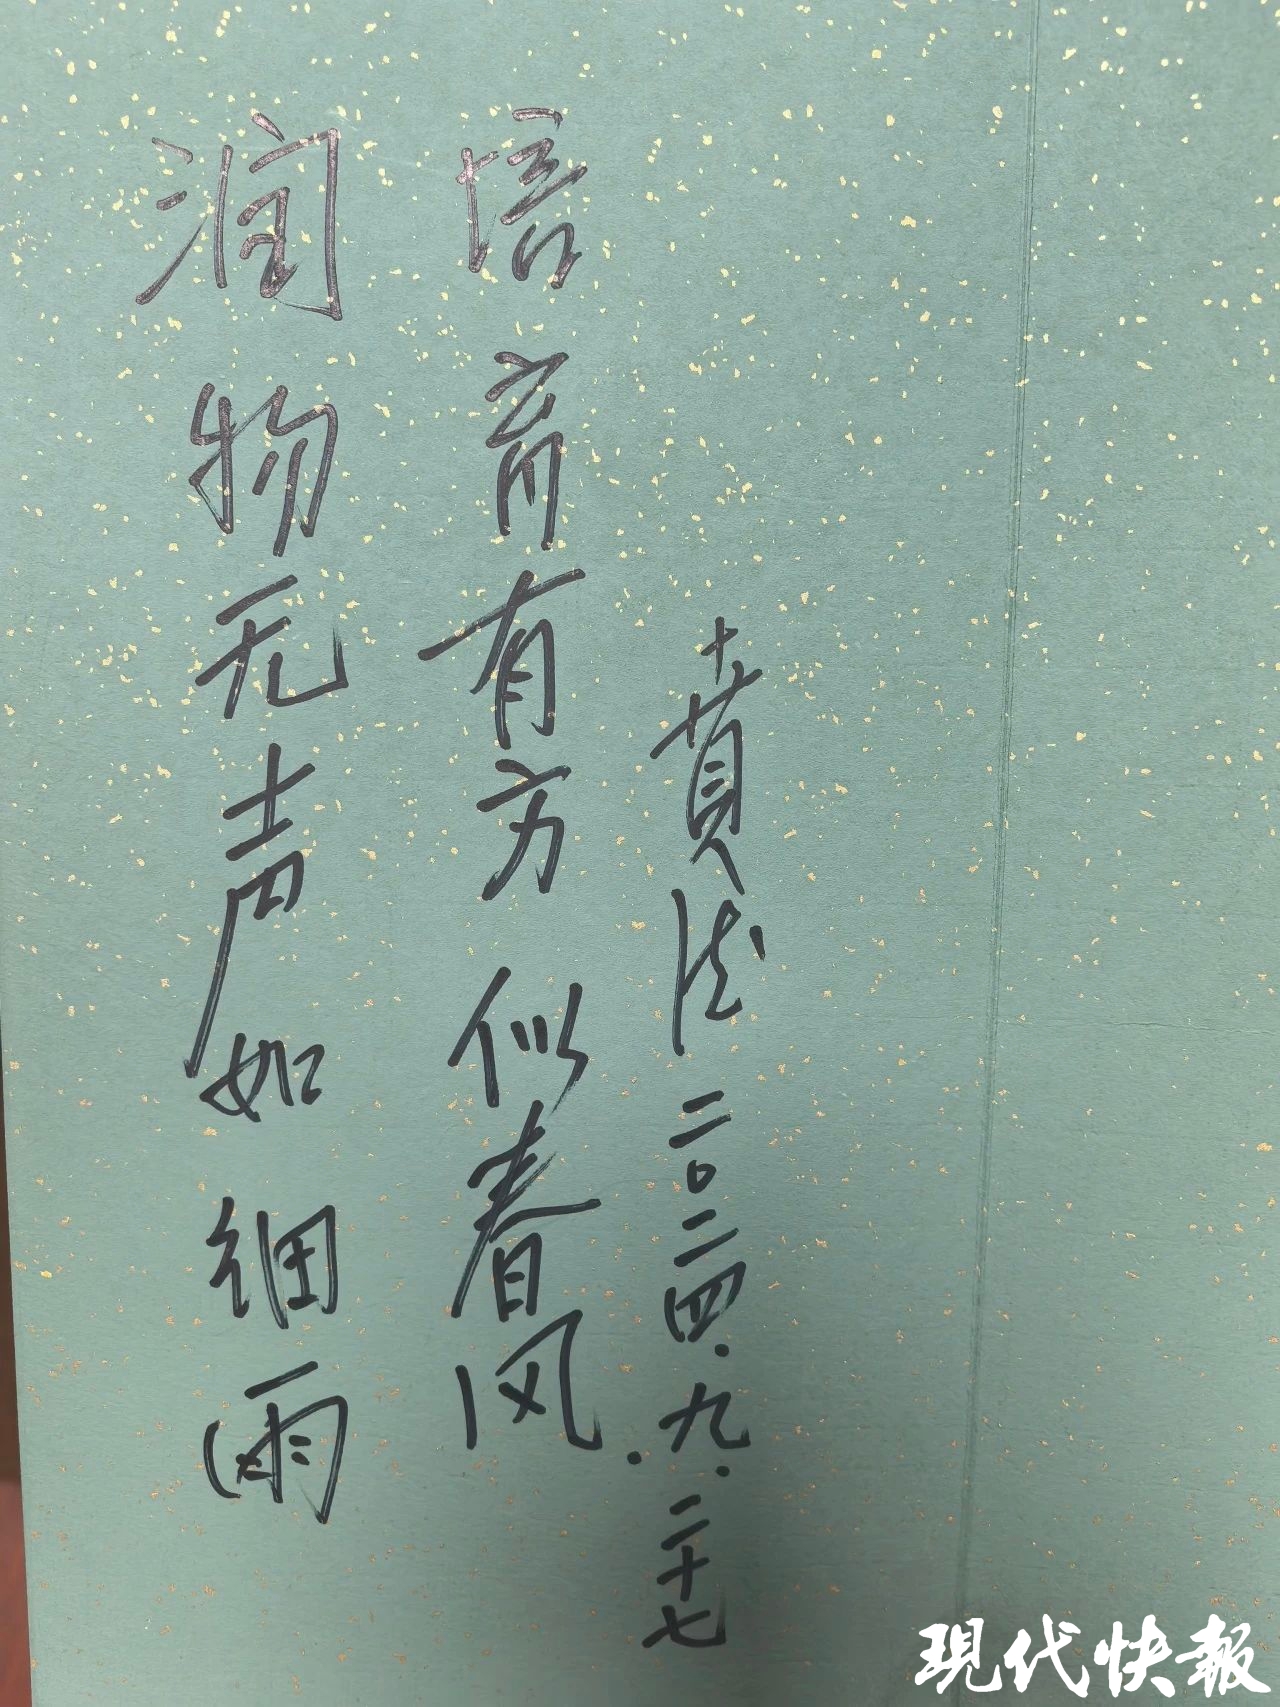 润物无声如细雨
培育有方似春风.
二〇二四.九.二十七
现代快報